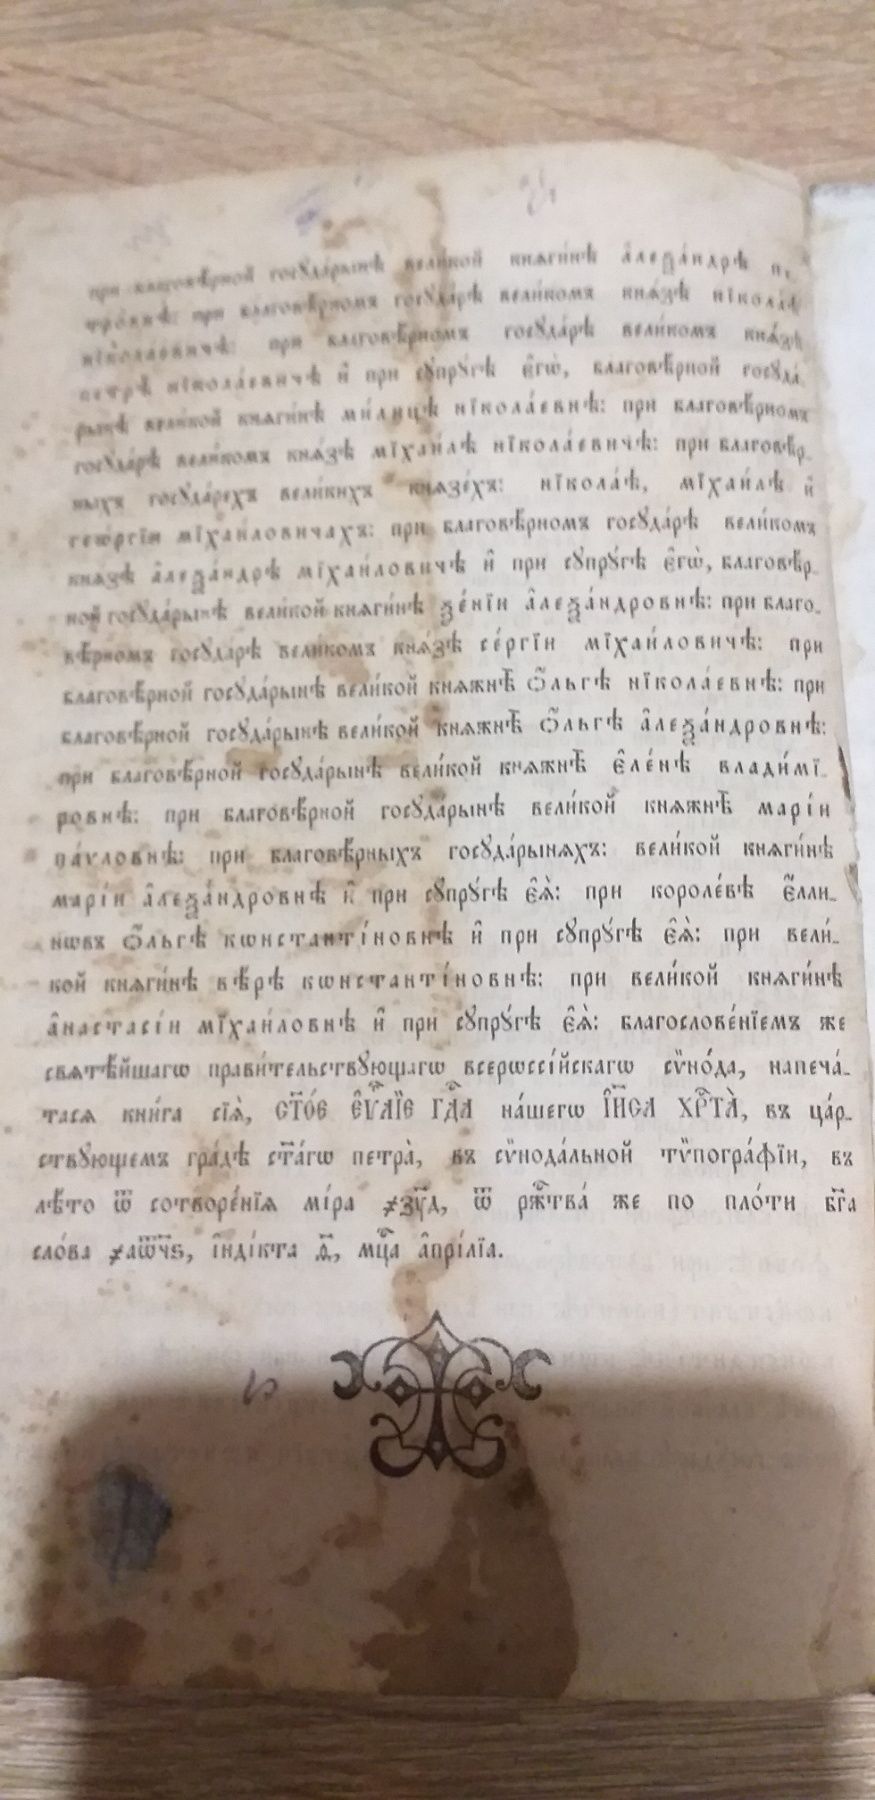 при благовѣ́рной госꙋда́рынѣ вели́кой кнѧги́нѣ а҆леѯа́ндрѣ
при благовѣ́рномъ госꙋда́рѣ вели́комъ кнѧ́зѣ нїкола́ѣ
нїкола́евичѣ: при благовѣ́рномъ госꙋда́рѣ вели́комъ кнѧ́зѣ
петрѣ̀ нїкола́евичѣ и҆ при сꙋпрꙋ́гѣ є҆гѡ̀, благовѣ́рной госꙋда́-
рынѣ вели́кой кнѧги́нѣ ми́лицѣ нїкола́евнѣ: при благовѣ́рномъ
госꙋда́рѣ вели́комъ кнѧ́зѣ мїхаи́лѣ нїкола́евичѣ: при благовѣ́р-
ныхъ госꙋда́рехъ вели́кихъ кнѧзе́хъ: нїкола́ѣ, мїхаи́лѣ и҆
геѡ́ргїи мїхаи́ловичахъ: при благовѣ́рномъ госꙋда́рѣ вели́комъ
кнѧ́зѣ а҆леѯа́ндрѣ мїхаи́ловичѣ и҆ при сꙋпрꙋ́гѣ є҆гѡ̀, благовѣ́р-
ной госꙋда́рынѣ вели́кой кнѧги́нѣ ѯе́нїи а҆леѯа́ндровнѣ: при благо-
вѣ́рномъ госꙋда́рѣ вели́комъ кнѧ́зѣ се́ргїи мїхаи́ловичѣ: при
благовѣ́рной госꙋда́рынѣ вели́кой кнѧжнѣ̀ ѻ҆́льгѣ нїкола́евнѣ: при
благовѣ́рной госꙋда́рынѣ вели́кой кнѧжнѣ̀ ѻ҆́льгѣ а҆леѯа́ндровнѣ:
при благовѣ́рной госꙋда́рынѣ вели́кой кнѧжнѣ̀ є҆ле́нѣ влади́мї-
ровнѣ: при благовѣ́рной госꙋда́рынѣ вели́кой кнѧжнѣ̀ марі́и
па́ѵловнѣ: при благовѣ́рныхъ госꙋда́рынѧхъ: вели́кой кнѧги́нѣ
марі́и а҆леѯа́ндровнѣ и҆ при сꙋпрꙋ́гѣ є҆ѧ̀: при короле́вѣ є҆́лли-
нѡвъ ѻ҆́льгѣ кѡнстанті́новнѣ и҆ при сꙋпрꙋ́гѣ є҆ѧ̀: при вели́-
кой кнѧги́нѣ вѣ́рѣ кѡнстанті́новнѣ: при вели́кой кнѧги́нѣ
а҆настасі́и мїхаи́ловнѣ и҆ при сꙋпрꙋ́гѣ є҆ѧ̀: благослове́нїемъ же
свѧтѣ́йшагѡ прави́тельствꙋющагѡ всерѡссі́йскагѡ сѷно́да, напеча́-
тасѧ кни́га сїѧ̀, СТ҃О́Е Є҆Ѵⷢ҇ЛЇЕ ГДⷭ҇А на́шегѡ І҆И҃СА ХРⷭ҇ТА̀, въ ца́р-
ствꙋющемъ гра́дѣ ст҃а́гѡ петра̀, въ сѷнода́льной тѷпогра́фїи, въ
лѣ́то ѿ сотворе́нїѧ мі́ра ҂зу҃д, ѿ ржⷭ҇тва́ же по пло́ти бг҃а
сло́ва ҂аѡ҃чѕ, і҆ндї́кта ѳ҃, мцⷭ҇а а҆прі́лїа.